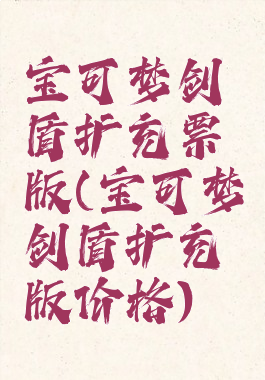 宝可梦剑
盾扩充票
版(宝可梦
剑盾扩充
版价格)